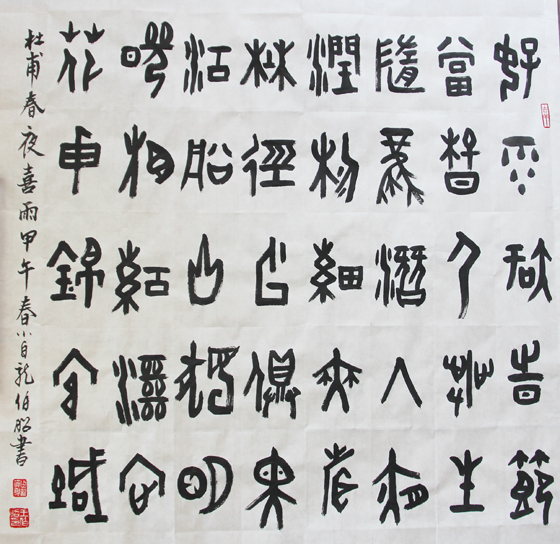 好雨知時節
當春乃發生
隨風潛入夜
潤物細無聲
野徑雲俱黑
江船火獨明
曉看紅濕處
花重錦官城
杜甫春夜喜雨甲午春小白龍伯昭書